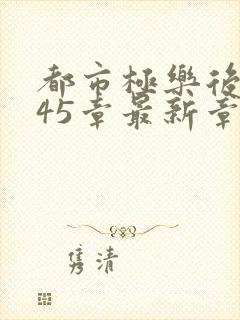 都市極樂後
45章最新章
隽清